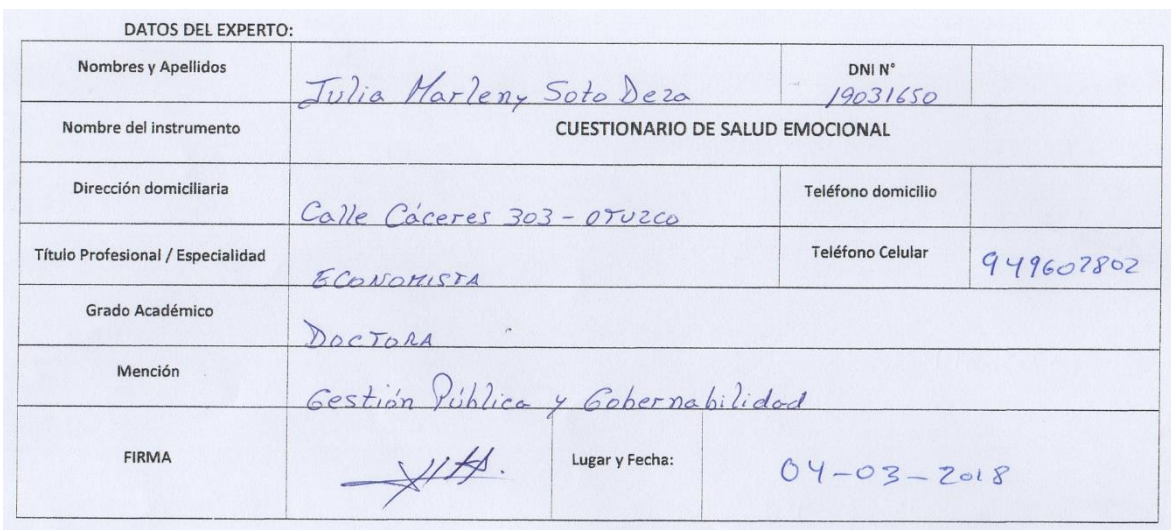 DATOS DEL EXPERTO:
Nombres y Apellidos Julia Marleny Soto Deza DNI N° 19031650
Nombre del instrumento CUESTIONARIO DE SALUD EMOCIONAL
Dirección domiciliaria Calle Cáceres 303 - OTUZCO Teléfono domicilio
Título Profesional / Especialidad ECONOMISTA Teléfono Celular 949602802
Grado Académico DOCTORA
Mención Gestión Pública y Gobernabilidad
FIRMA Lugar y Fecha: 04-03-2018